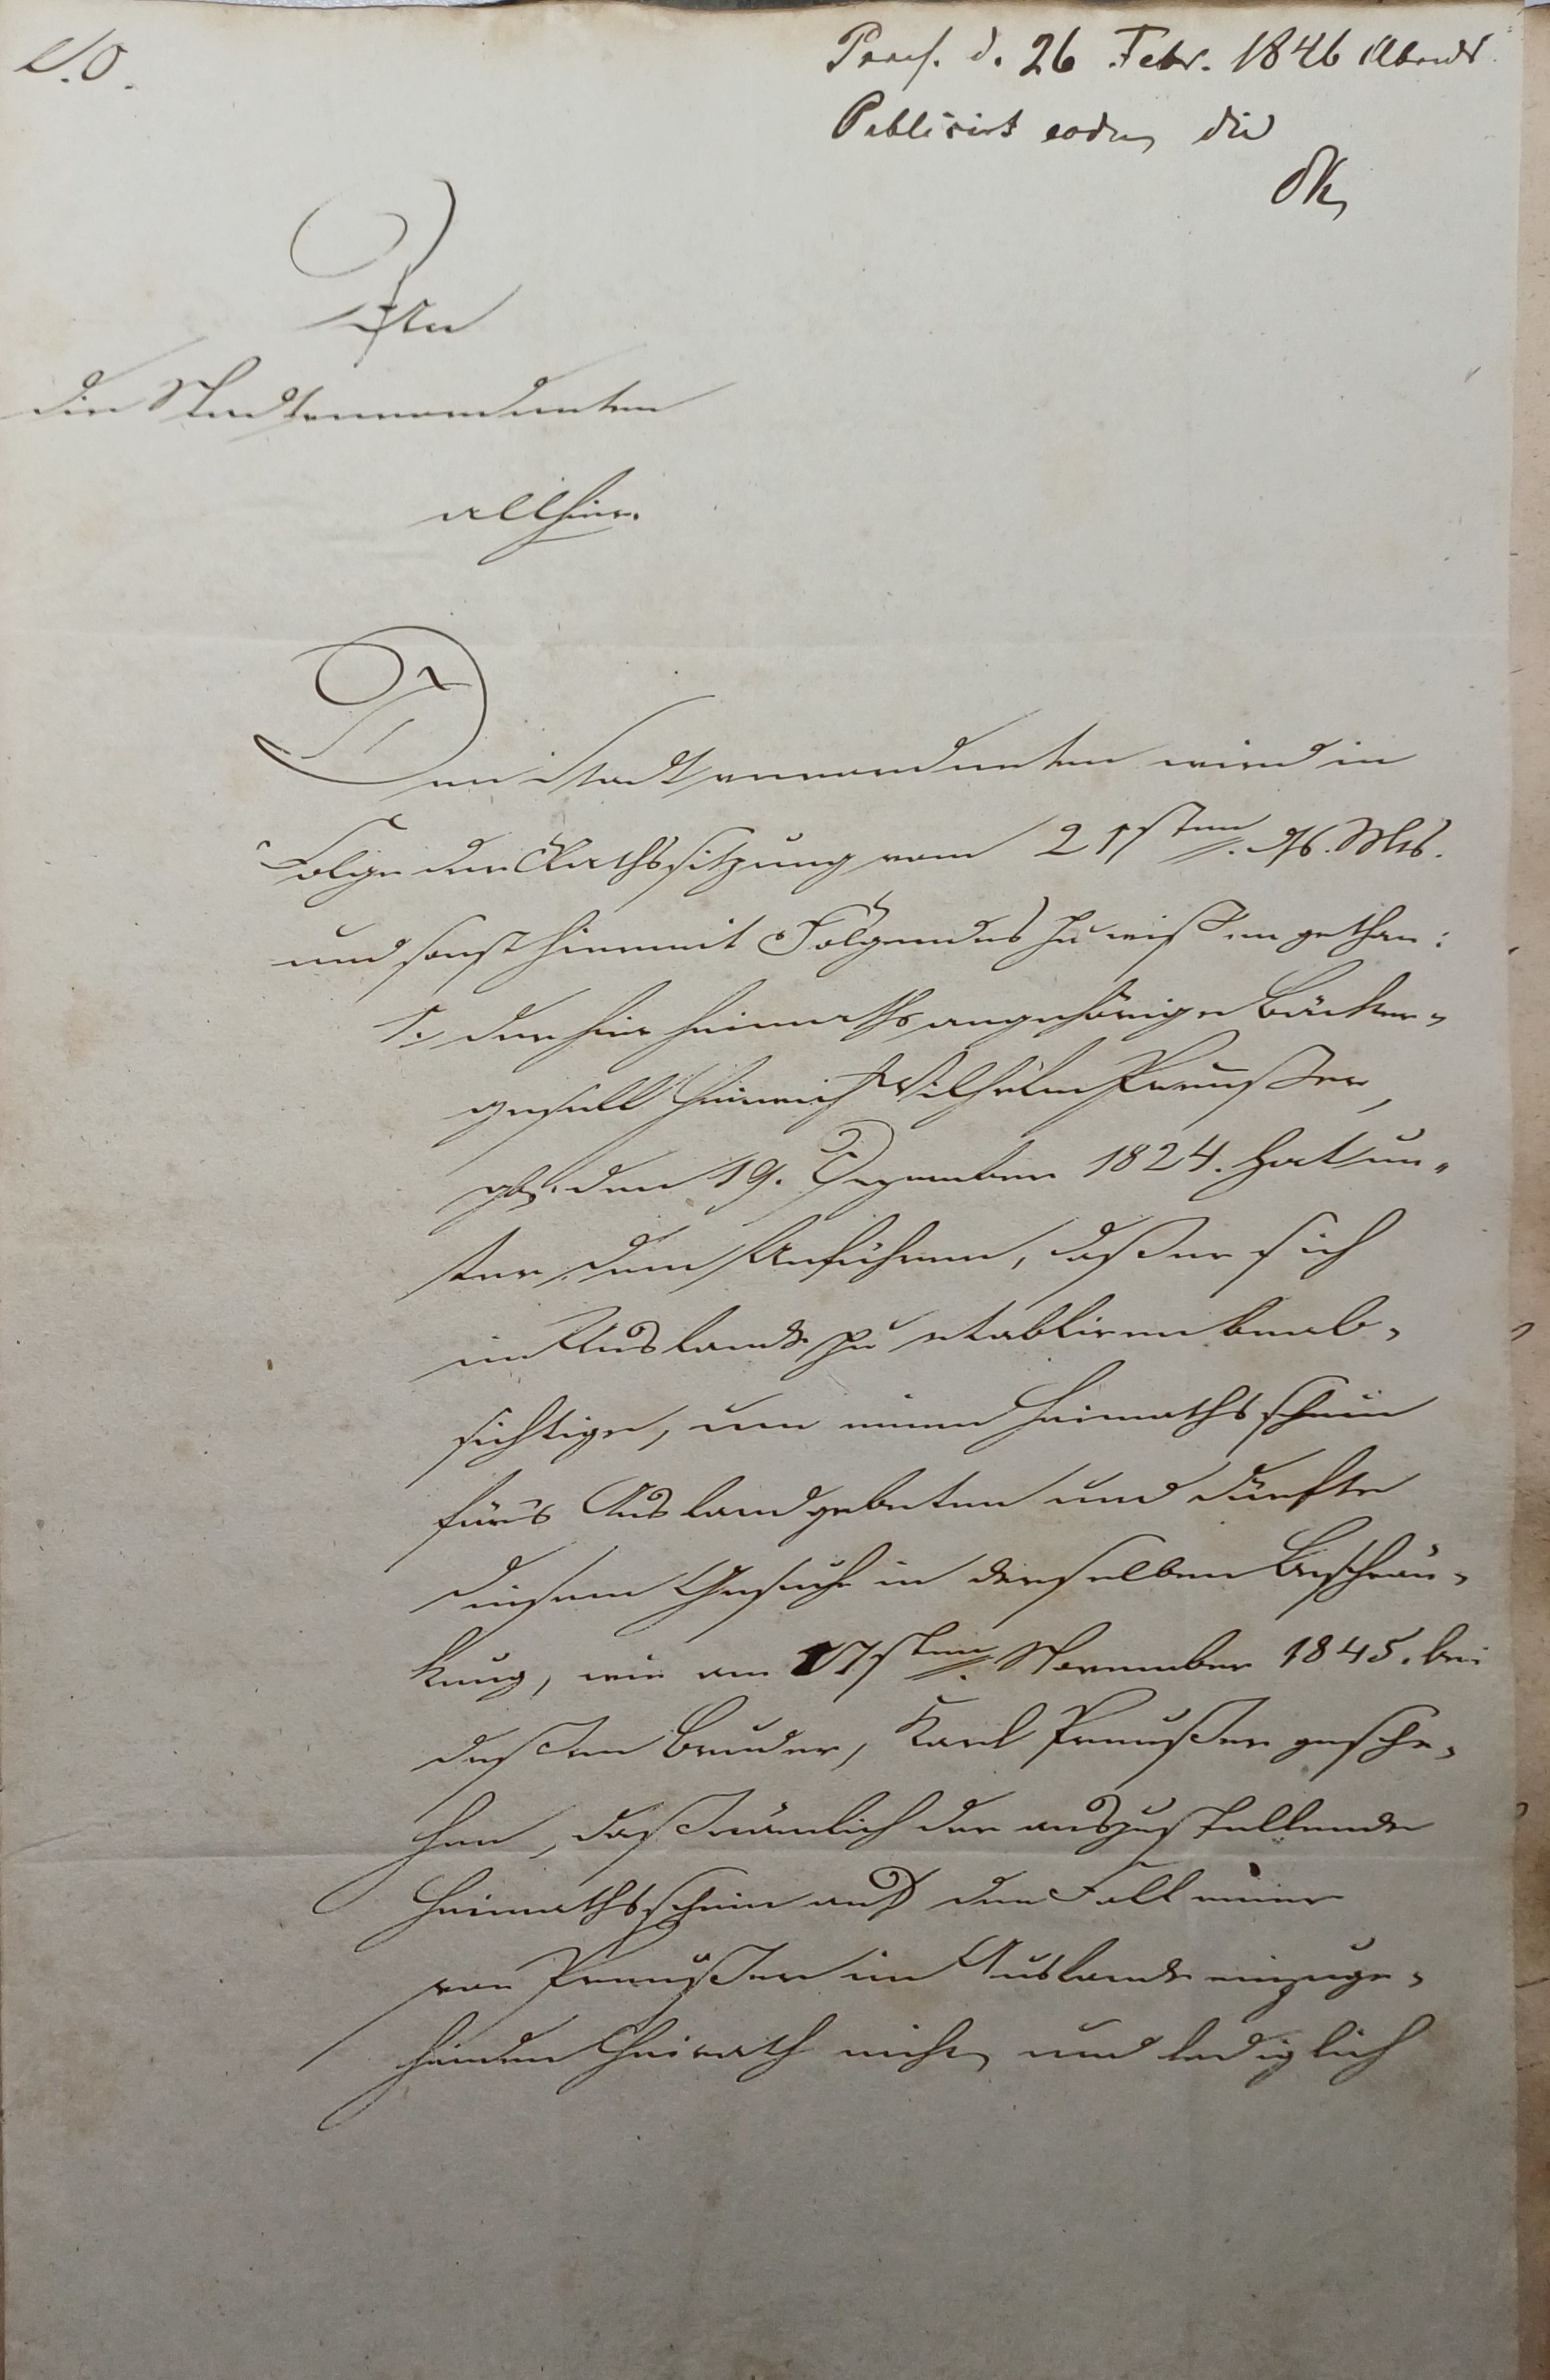 Praes. d. 26 Febr. 1846 Abends
Publicirt eodem die
An
die Stadtverordneten
allhier.
Den Stadtverordneten wird in
Folge der Rathssitzung vom 21sten ds. Mts.
und sonst hiermit Folgendes zu wißen gethan:
1., der hier heimathsangehörige Bäcker-
gesell Heinrich Wilhelm Preußer,
geb. den 19. Dezember 1824. hat un-
ter dem Anführen, daß er sich
im Auslande zu etabliren beab-
sichtige, um einen Heimathsschein
für's Ausland gebeten und dürfte
diesem Gesuche in derselben Beschrän-
kung, wie am 17ten November 1845. bei
deßen Bruder, Karl Preußer gesche-
hen, daß nämlich der auszustellende
Heimathsschein auf den Fall einer
von Preußer im Auslande einzuge-
henden Heirath nicht, und lediglich